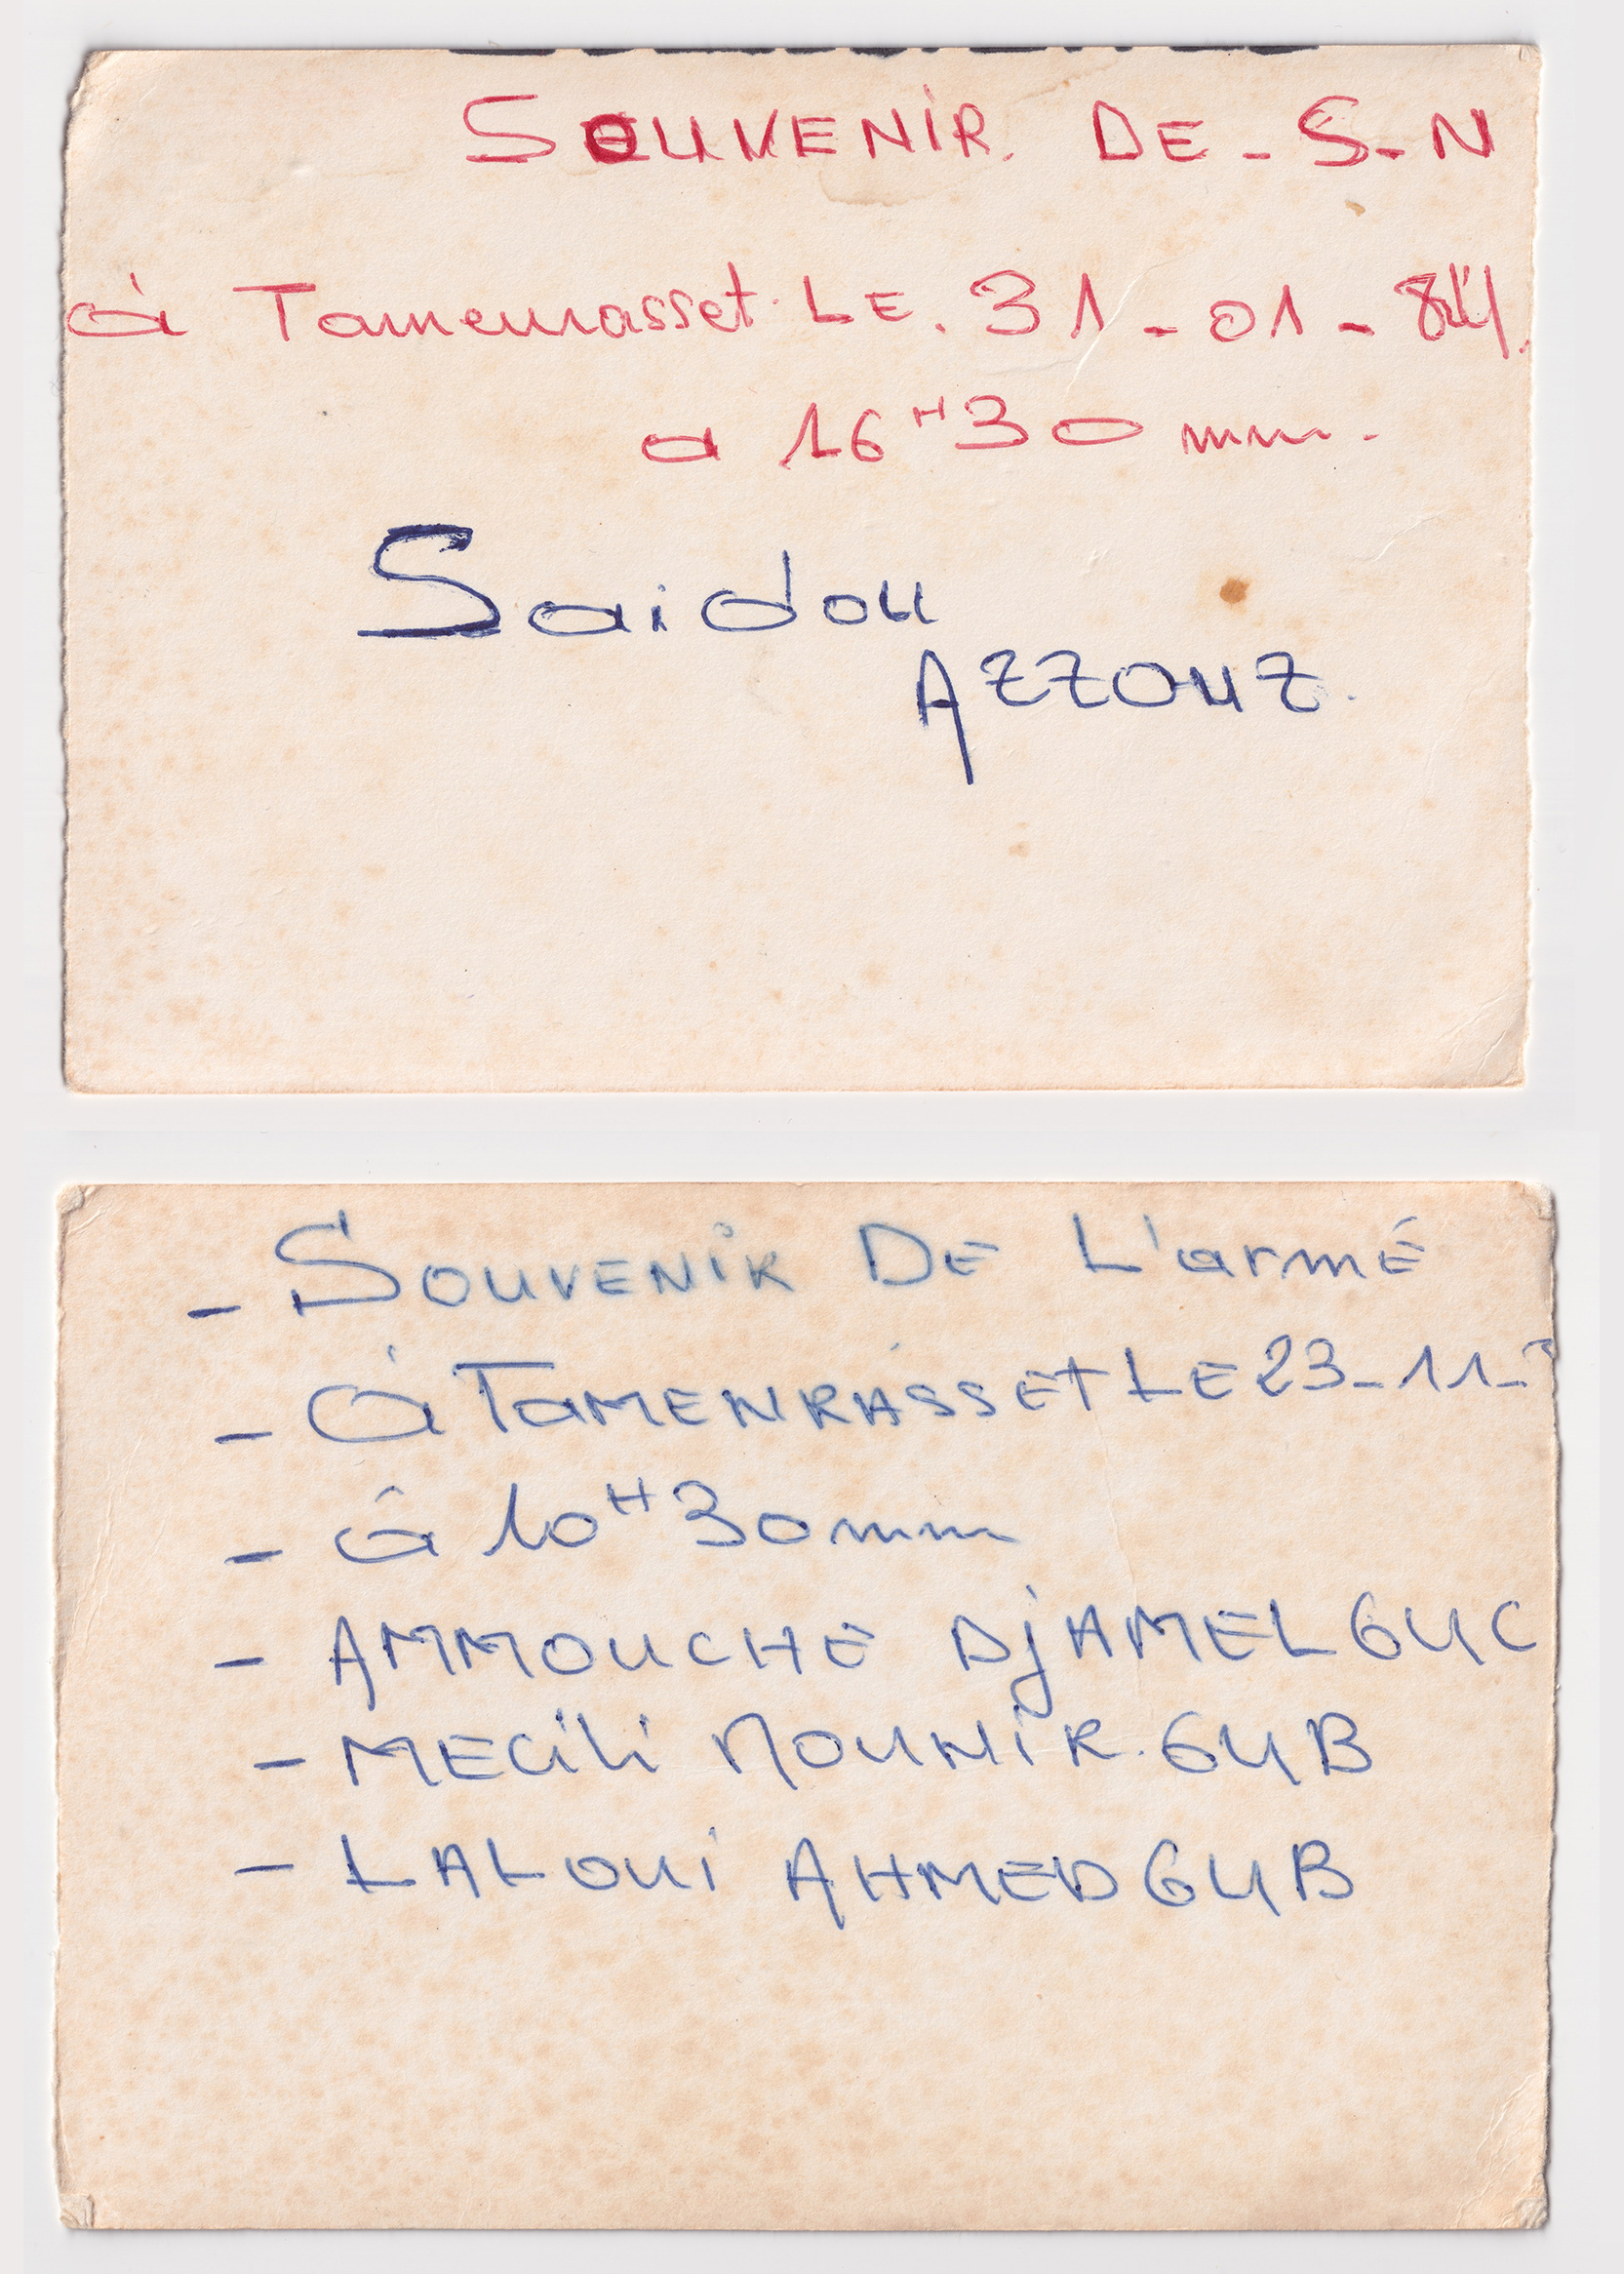 SOUVENIR. DE - S - N
à Tamenrasset. LE. 31 - 01 - 84.
a 16 H 30 mm.
Saidou
AZZOUZ.
- SOUVENIR DE L'armÉ
- à TAMENRASSET LE 23 - 11 -
- à 10 H 30 mm
- AMMOUCHE DjAMEL 6UC
- MECili MOUNiR. 6UB
- LALOUi AHMED 6UB